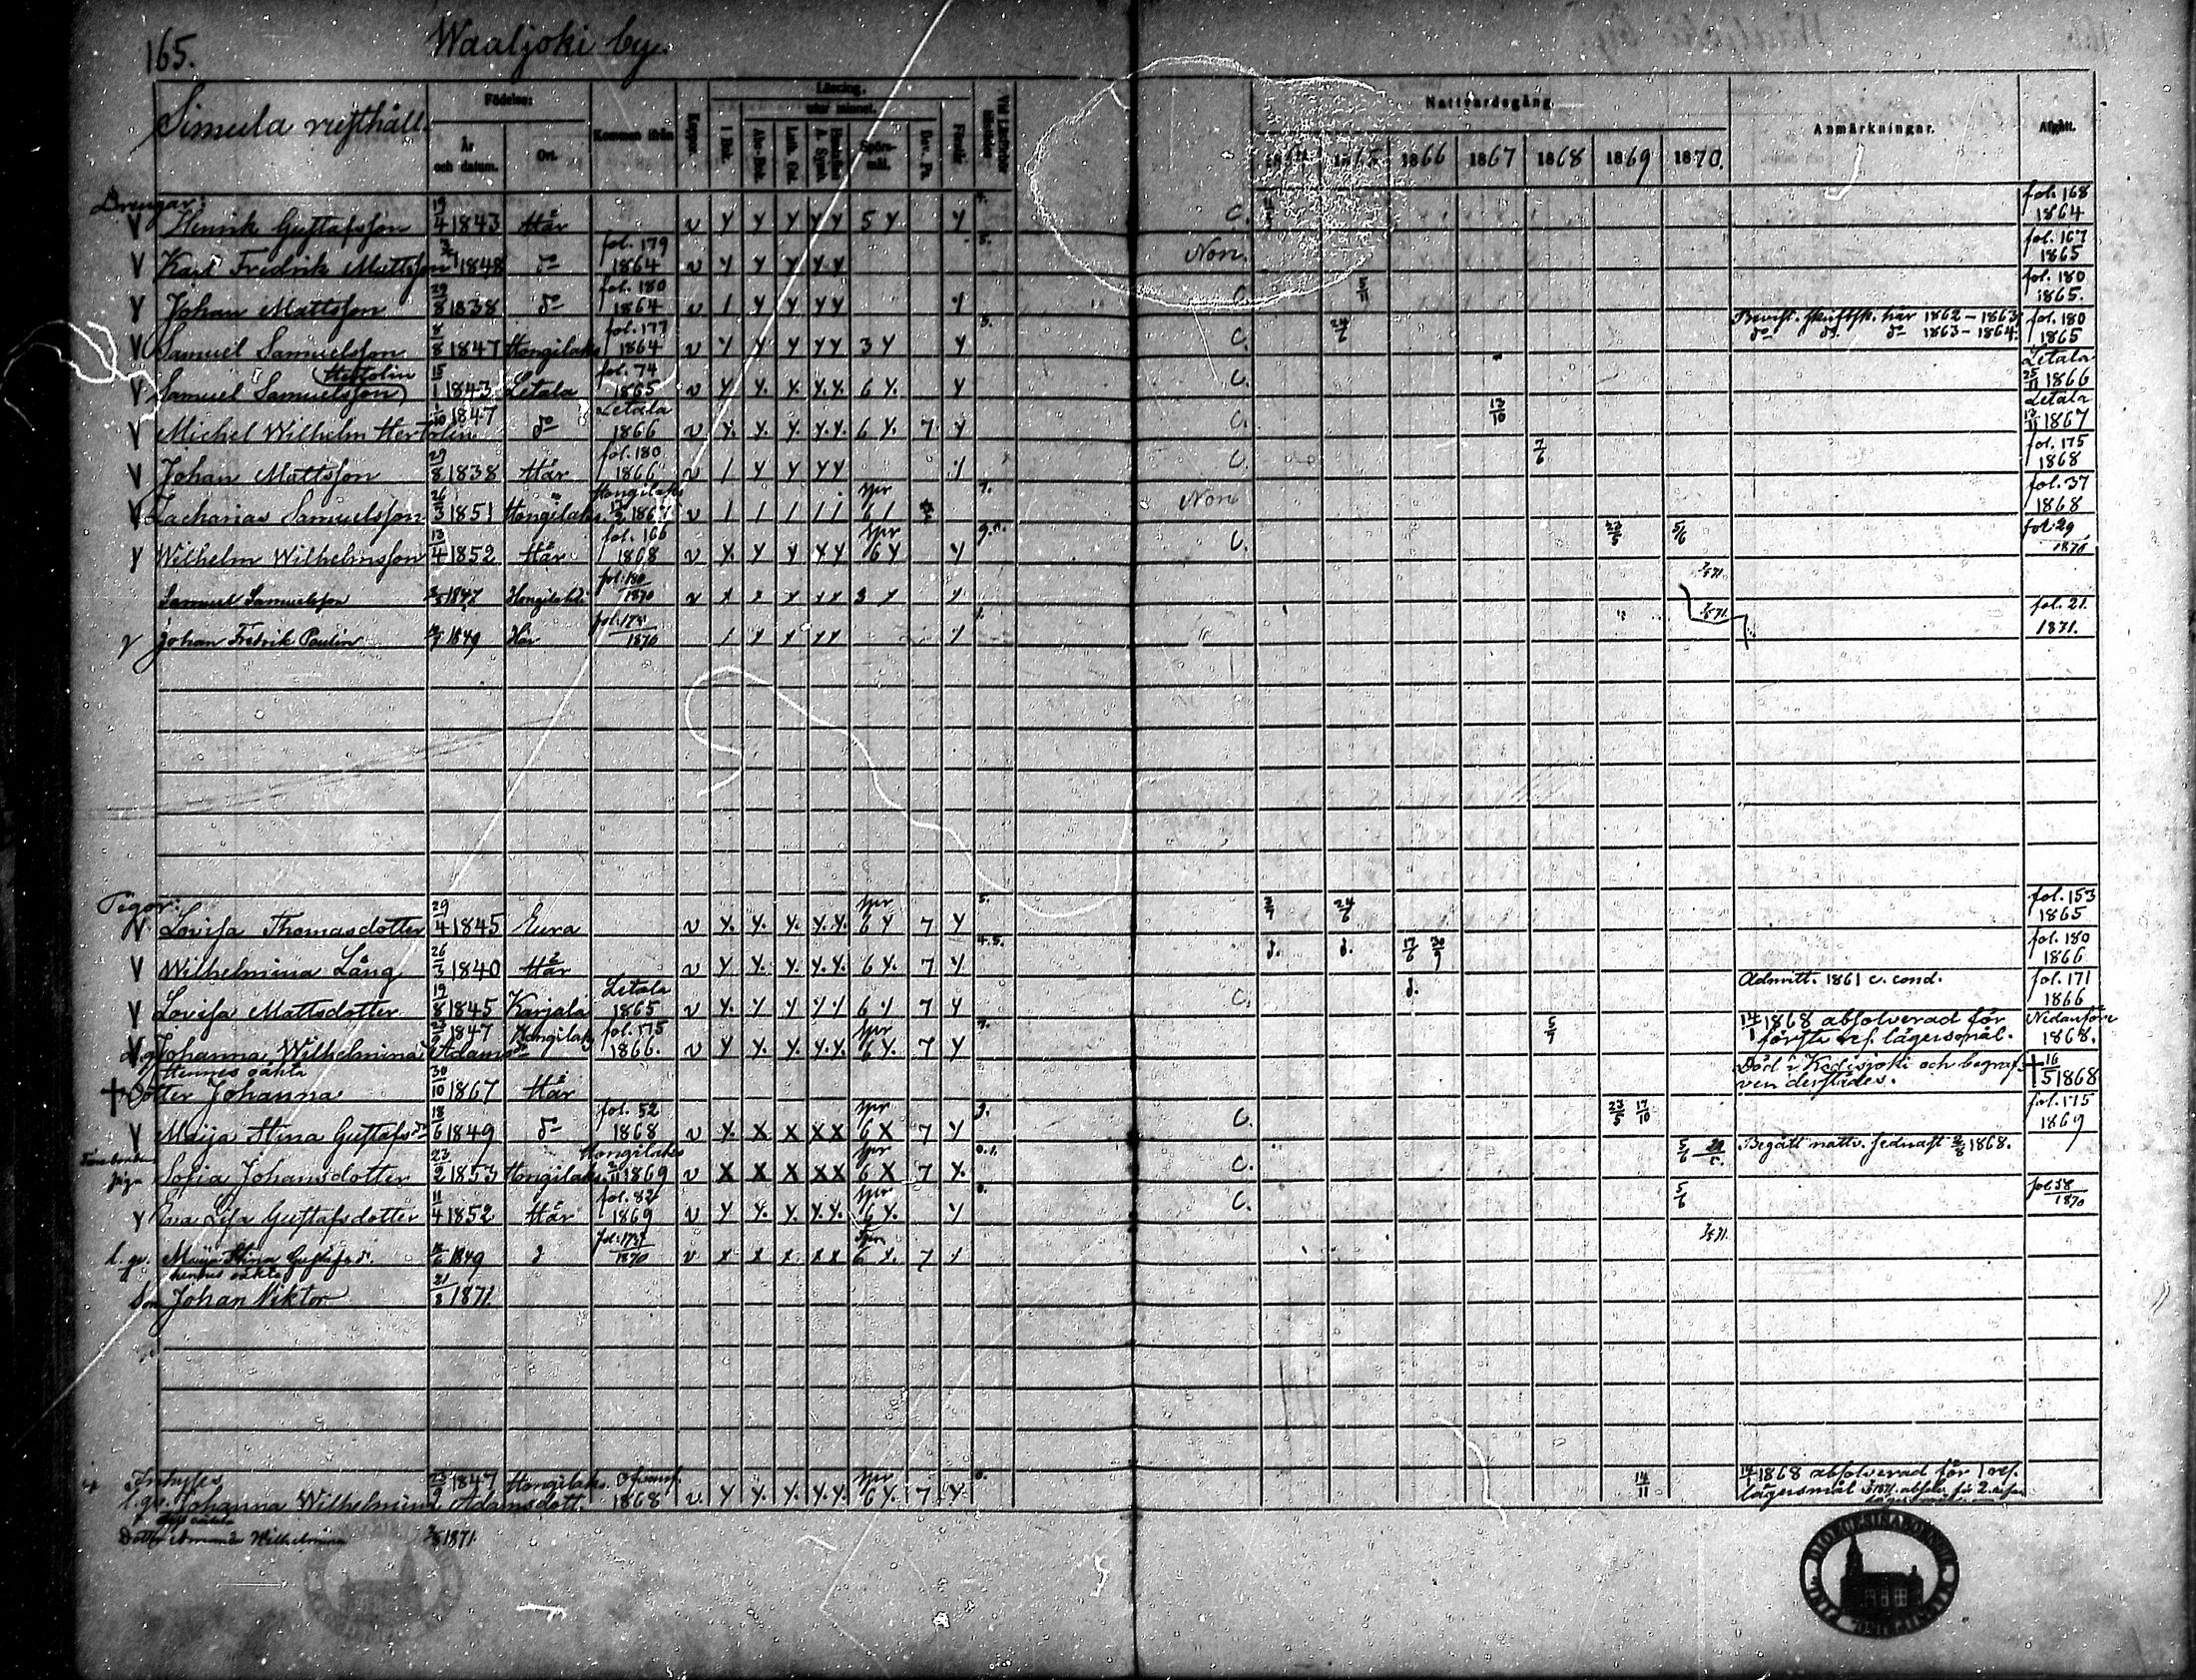 165. Waaljoki by.
Simula rusthåll.
Födelse: År och datum. Ort. Kommen ifrån Koppor. Läsning. I Bok. utur minnet. Abc-Bok. Luth. Cat. A. Symb. Hustaflan Spörs-mål. Dav. Ps. Förstår Nattvardsgång. 1866 1867 1868 1869 1870. Anmärkningar. Afgått.
Drengar:
V Henrik Gustafsson 19/4 1843 Här v Y Y Y Y Y 5 Y Y C. fol. 168 1864
V Karl Fredrik Mattsson 1848 do fol. 179 1864 v Y Y Y Y Y 5. Non. fol. 167 1865
V Johan Mattsson 29/8 1838 do fol. 180 1864 v / Y Y Y Y Y C. 5/11 fol. 180 1865.
V Samuel Samuelsson 8/8 1847 Hongilaks fol. 177 1864 v Y Y Y Y Y 3 Y Y 3. C. 24/6 Bevist. skriftsk. här 1862-1863. do do do 1863-1864. fol. 180 1865
V Samuel Samuelsson (Hertolin) 15/1 1843 Letala fol. 74 1865 v Y Y. Y. Y. Y. 6 Y. Y C. Letala 25/11 1866
V Michel Wilhelm Hertolin 1847 do Letala 1866 v Y. Y. Y. Y. Y. 6 Y. 7 Y C. 13/10 Letala 13/11 1867
V Johan Mattsson 29/8 1838 Här fol. 180 1866 v / Y Y Y Y Y C. 7/6 fol. 175 1868
V Zacharias Samuelsson 26/3 1851 Hongilaks. Hongilaks 1867 v / / / / / spr 6 / 7. Non fol. 37 1868
Y Wilhelm Wilhelmsson 13/4 1852 Här fol. 166 1868 v Y. Y Y Y Y spr 6 Y Y C. 23/5 5/6 fol. 29 1870
Samuel Samuelsson 1847 Hongilaks fol. 180 1870 v x x Y Y Y 3 Y Y
v Johan Fredrik Paulin 1849 Här 1870 / Y Y Y Y Y fol. 21. 1871.
Pigor:
V Lovisa Thomasdotter 29/4 1845 Eura v Y. Y. Y. Y. Y. spr 6 Y 7 Y 5. 2/7 24/6 fol. 153 1865
V Wilhelmina Lång 26/3 1840 Här v Y Y. Y. Y. Y. 6 Y. 7 Y. 4.5. d. d. 17/6 30/9 fol. 180 1866
V Lovisa Mattsdotter 19/8 1845 Karjala Letala 1865 v Y. Y Y Y Y 6 Y 7 Y C. d. Admitt. 1861 c. cond. fol. 171 1866
V l. q. Johanna Wilhelmina Adamsdr 23/9 1847 Hongilaks fol. 175 1866. v Y Y. Y. Y. Y. spr 6 Y. 7 Y 7. 5/7 14/1 1868 absolverad för första resf. lägersmål. Nedanföre 1868.
Hennes oäkta
† Dotter Johanna 30/10 1867 Här Död i Kodisjoki och begrafven derstädes. † 16/5 1868
V Maija Stina Gustafsdr 18/6 1849 do fol. 52 1868 v Y. X X X X spr 6 X 7 Y 9. C. 23/5 17/10 fol. 175 1869
piga Sofia Johansdotter 23/2 1853 Hongilaks. Hongilaks 1869 v X X X X X spr 6 X 7 X. 0.1. C. 5/6 Begått nattv. sednast 1868.
Y Eva Lisa Gustafsdotter 11/4 1852 Här fol. 82 1869 v Y Y. Y. Y. Y. spr 6 Y. Y 0. C. 5/6 fol. 58 1870
l. qv. Maija Stina Gustafsd. 18/6 1849 d 1870 v x x x x x Spr 6 x. 7 Y
hennes oäkta
Son Johan Viktor 21/8 1871.
Inhyses
l. qv. Johanna Wilhelmina Adamsdott. 23/9 1847 Hongilaks. Ofvanf. 1868 v. Y Y. Y. Y. Y. spr 6 Y. 7 Y. 0. 14/11 14/1 1868 absolverad för 1 ref. lägersmål 1871. absolv. för 2. resan lägersmål
Dess oäkta
Dotter Amanda Wilhelmina 1871.